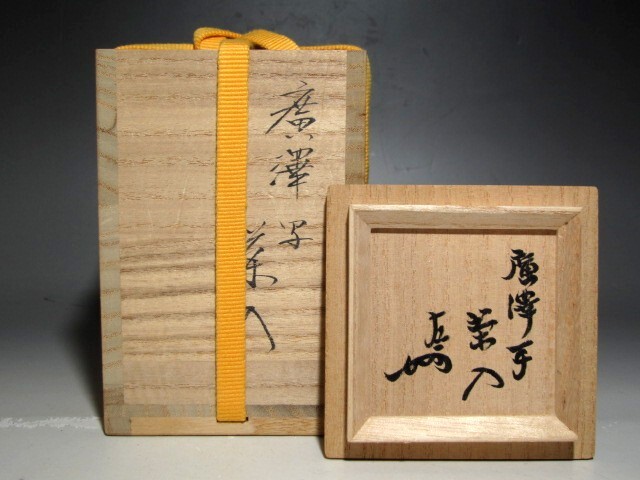 廣澤写
茶入
廣澤手
茶入